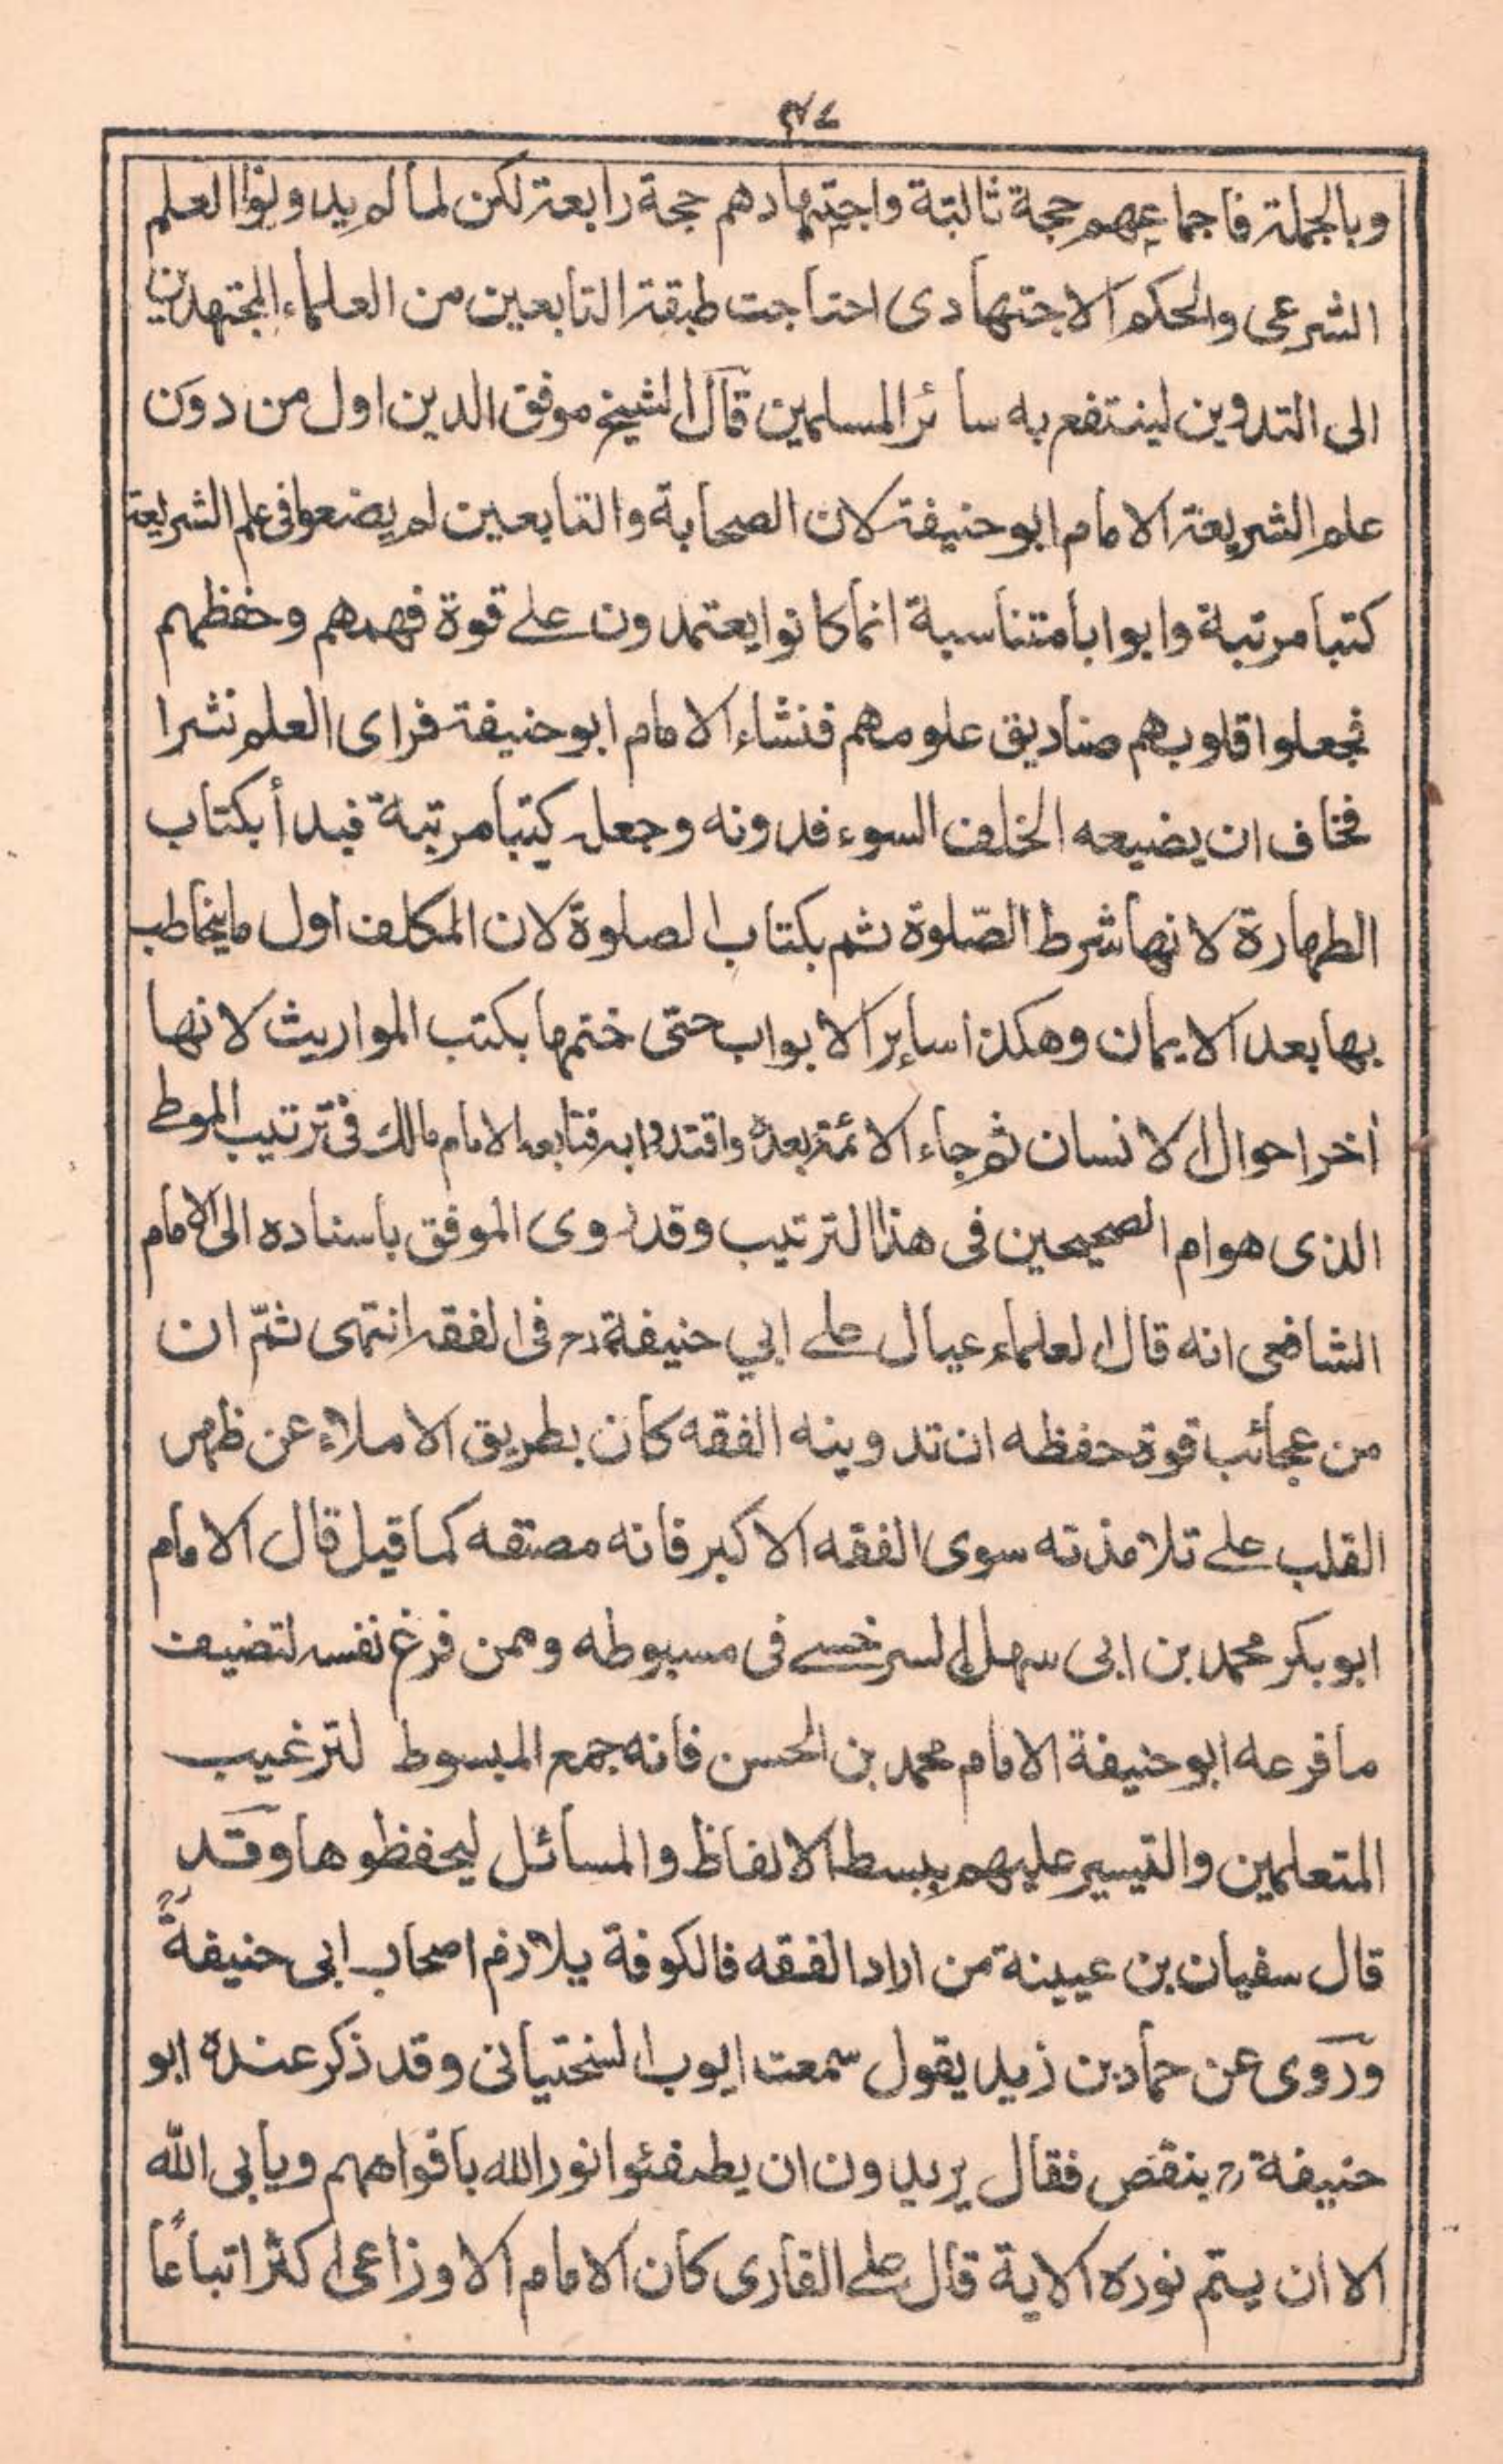 ٣٤
وبالجملة فاجماعهم حجة ثالثة واجتهادهم حجة رابعة لكن لما لم يدونوا العلم
الشرعى والحكم الاجتهادى احتاجت طبقة التابعين من العلماء المجتهدين
الى التدوين لينتفع به سائر المسلمين قال الشيخ موفق الدين اول من دون
علم الشريعة الامام ابو حنيفة لان الصحابة والتابعين لم يضعوا فى علم الشريعة
كتبا مرتبة وابوابا متناسبة انما كانوا يعتمدون على قوة فهمهم وحفظهم
فجعلوا قلوبهم صناديق علومهم فنشاء الامام ابو حنيفة فراى العلم نشرا
فخاف ان يضيعه الخلف السوء فدونه وجعله كتبا مرتبة فبدأ بكتاب
الطهارة لانها شرط الصّلوة ثم بكتاب الصلوة لان المكلف اول ما يخاطب
بها بعد الايمان وهكذا ساير الابواب حتى ختمها بكتب المواريث لانها
أخر احوال الانسان ثم جاء الائمة بعده واقتدوا به فتابعه الامام مالك فى ترتيب الموطا
الذى هو ام الصحيحين فى هذا الترتيب وقد روى الموفق باسناده الى الامام
الشافعى انه قال العلماء عيال على ابي حنيفة رح فى الفقه انتهى ثمّ ان
من عجائب قوة حفظه ان تدوينه الفقه كان بطريق الاملاء عن ظهر
القلب على تلامذته سوى الفقه الاكبر فانه مصنفه كما قيل قال الامام
ابو بكر محمد بن ابى سهل السرخسى فى مسبوطه وممن فرغ نفسه لتضيف
ما فرعه ابو حنيفة الامام محمد بن الحسن فانه جمع المبسوط لترغيب
المتعلمين والتيسير عليهم ببسط الالفاظ والمسائل ليحفظوها وقد
قال سفيان بن عيينة من اراد الفقه فالكوفة يلازم اصحاب ابى حنيفة رح
وروى عن حماد بن زيد يقول سمعت ايوب السختيانى وقد ذكر عنده ابو
حنيفة رح بنقص فقال يريدون ان يطفئوا نور الله بافواههم ويابى الله
الا ان يتم نوره الاية قال على القارى كان الامام الاوزاعى اكثر اتباعًا